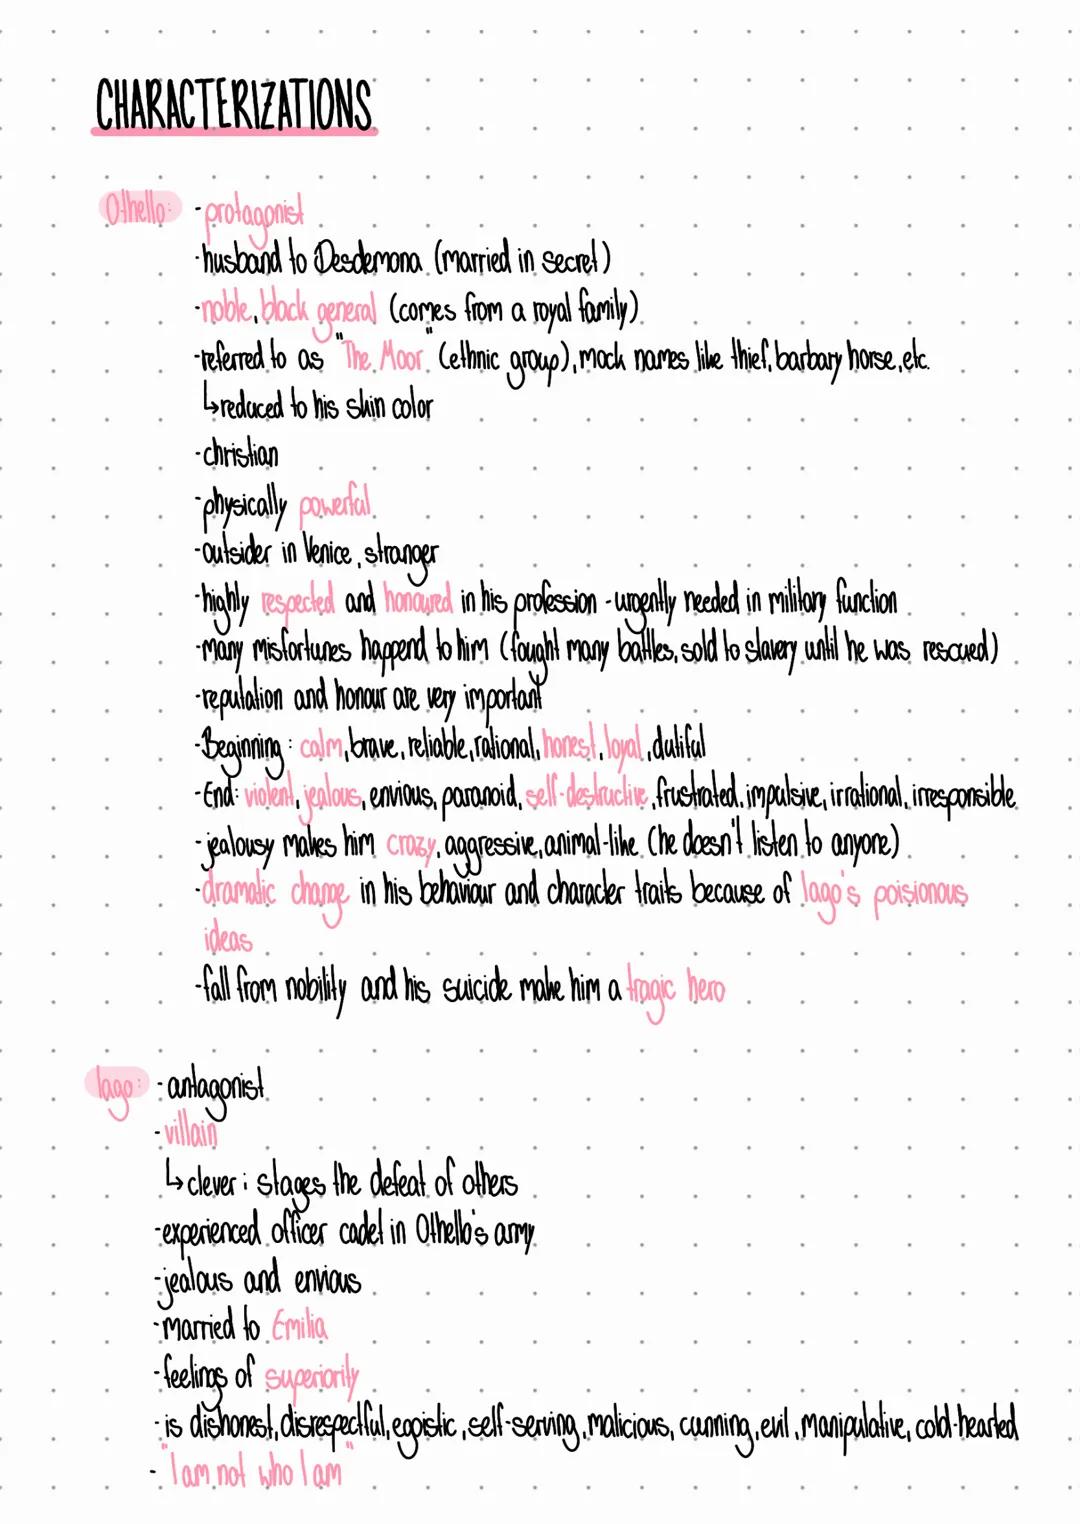 CHARACTERIZATIONS
Othello: -protagonist
-husband to Desdemona (married in secret)
-noble, black general (comes from a royal family)
-referred to as "The Moor" (ethnic group), mock names like thief, barbary horse, etc.
↳reduced to his skin color
-christian
-physically powerful
-outsider in Venice, stranger
-highly respected and honoured in his profession - urgently needed in military function
-many misfortunes happend to him (fought many battles, sold to slavery until he was rescued)
-reputation and honour are very important
-Beginning: calm, brave, reliable, rational, honest, loyal, dutiful
-End: violent, jealous, envious, paranoid, self-destructive, frustrated, impulsive, irrational, irresponsible
-jealousy makes him crazy, aggressive, animal-like (he doesn't listen to anyone)
-dramatic change in his behaviour and character traits because of Iago's poisionous
ideas
-fall from nobility and his suicide make him a tragic hero
Iago: -antagonist
-villain
↳clever: stages the defeat of others
-experienced officer cadet in Othello's army
-jealous and envious
-married to Emilia
-feelings of superiority
-is dishonest, disrespectful, egoistic, self-serving, malicious, cunning, evil, manipulative, cold-hearted
- "I am not who I am"